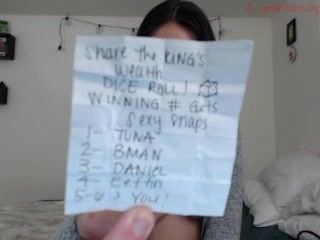 Share THE KING's
Wealth
DICE ROLL!
WINNING # Gets
Sexy Snaps
1- TUNA
2- BMAN
3- DANIEL
4- Celtin
5-6 > YOU!